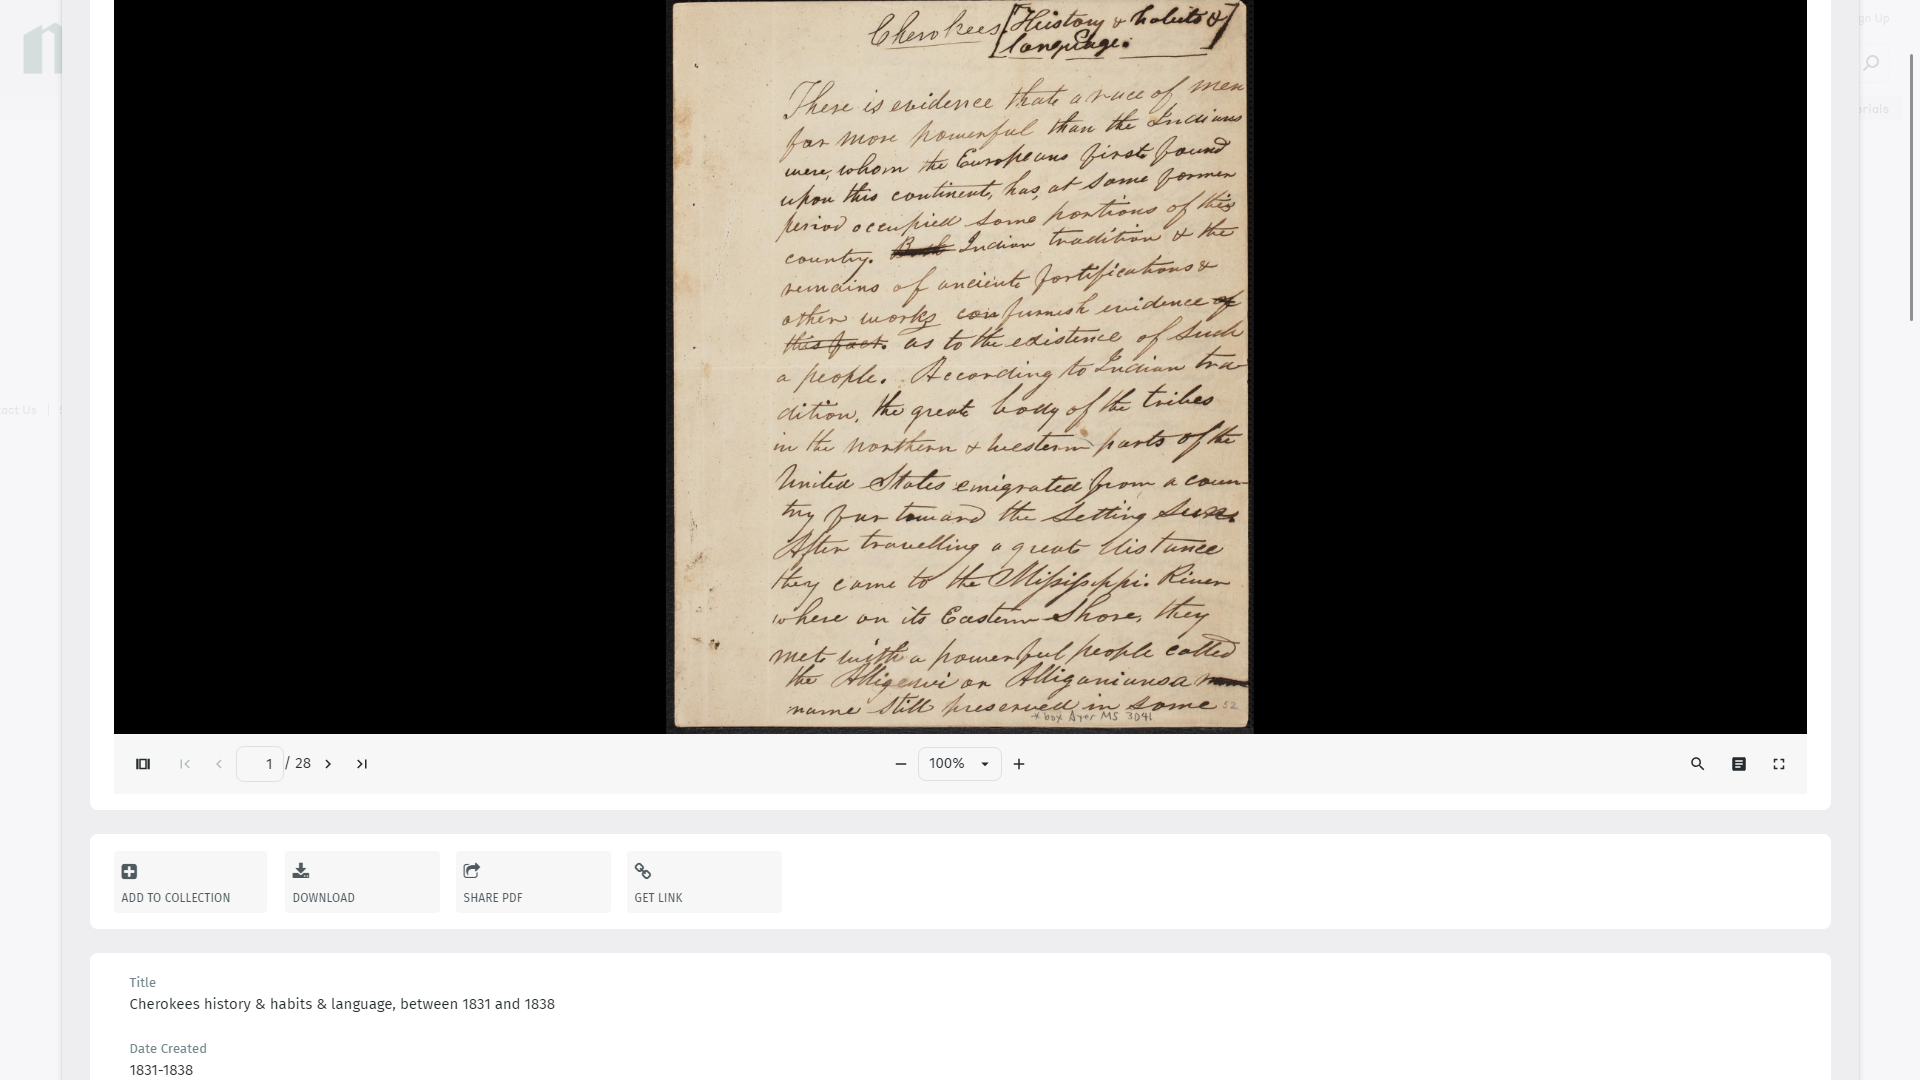 gn Up
rials
act Us | S
Cherokees [History & habits &
language.]
There is evidence that a race of men
far more powerful than the Indians
were, whom the Europeans first found
upon this continent, has, at some former
period occupied some portions of this
country. Both Indian tradition & the
remains of ancient fortifications &
other works con furnish evidence of
this fact. as to the existence of such
a people. According to Indian tra-
dition, the great body of the tribes
in the northern & western parts of the
United States emigrated from a coun-
try far toward the setting sun.
After travelling a great distance
they came to the Mississippi River
where on its Eastern Shore, they
met with a powerful people called
the Alligewi or Alliganians a
name still preserved in some 52
box Ayer MS 3041
1 / 28
100%
ADD TO COLLECTION
DOWNLOAD
SHARE PDF
GET LINK
Title
Cherokees history & habits & language, between 1831 and 1838
Date Created
1831-1838